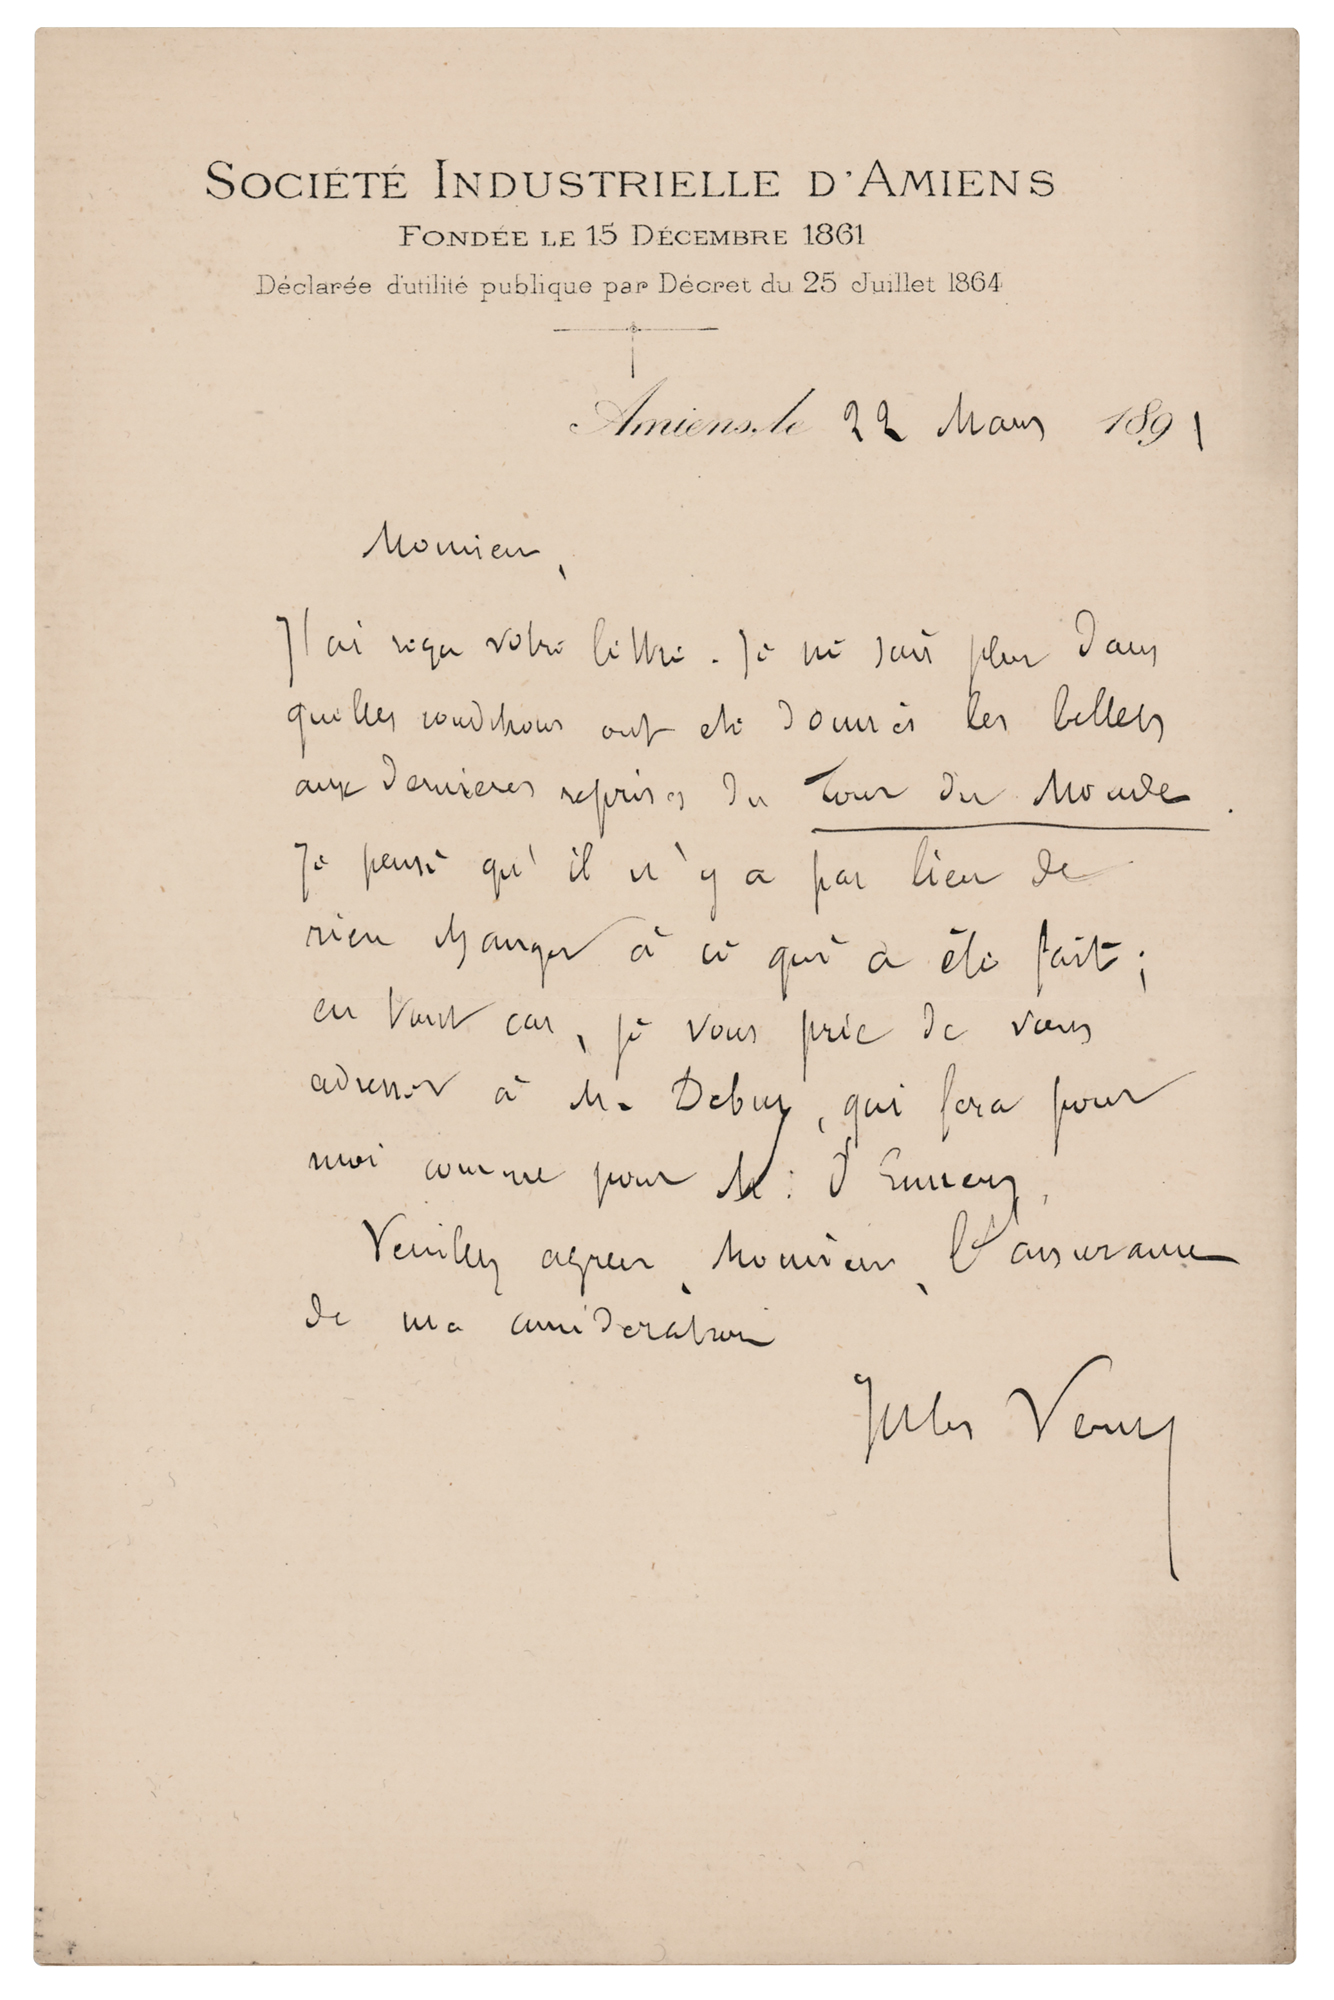 SOCIÉTÉ INDUSTRIELLE D'AMIENS
FONDÉE LE 15 DÉCEMBRE 1861
Déclarée d'utilité publique par Décret du 25 Juillet 1864
Amiens, le 22 Mars 1891
Monsieur,
J'ai reçu votre lettre. Je ne sais plus dans
quelles conditions ont été donnés les billets
aux dernières reprises du Tour du Monde.
Je pense qu'il n'y a pas lieu de
rien changer à ce qui a été fait;
en tout cas, je vous prie de vous
adresser à M. Debry, qui fera pour
moi comme pour M. d'Ennery.
Veuillez agréer, Monsieur, l'assurance
de ma considération
Jules Verne